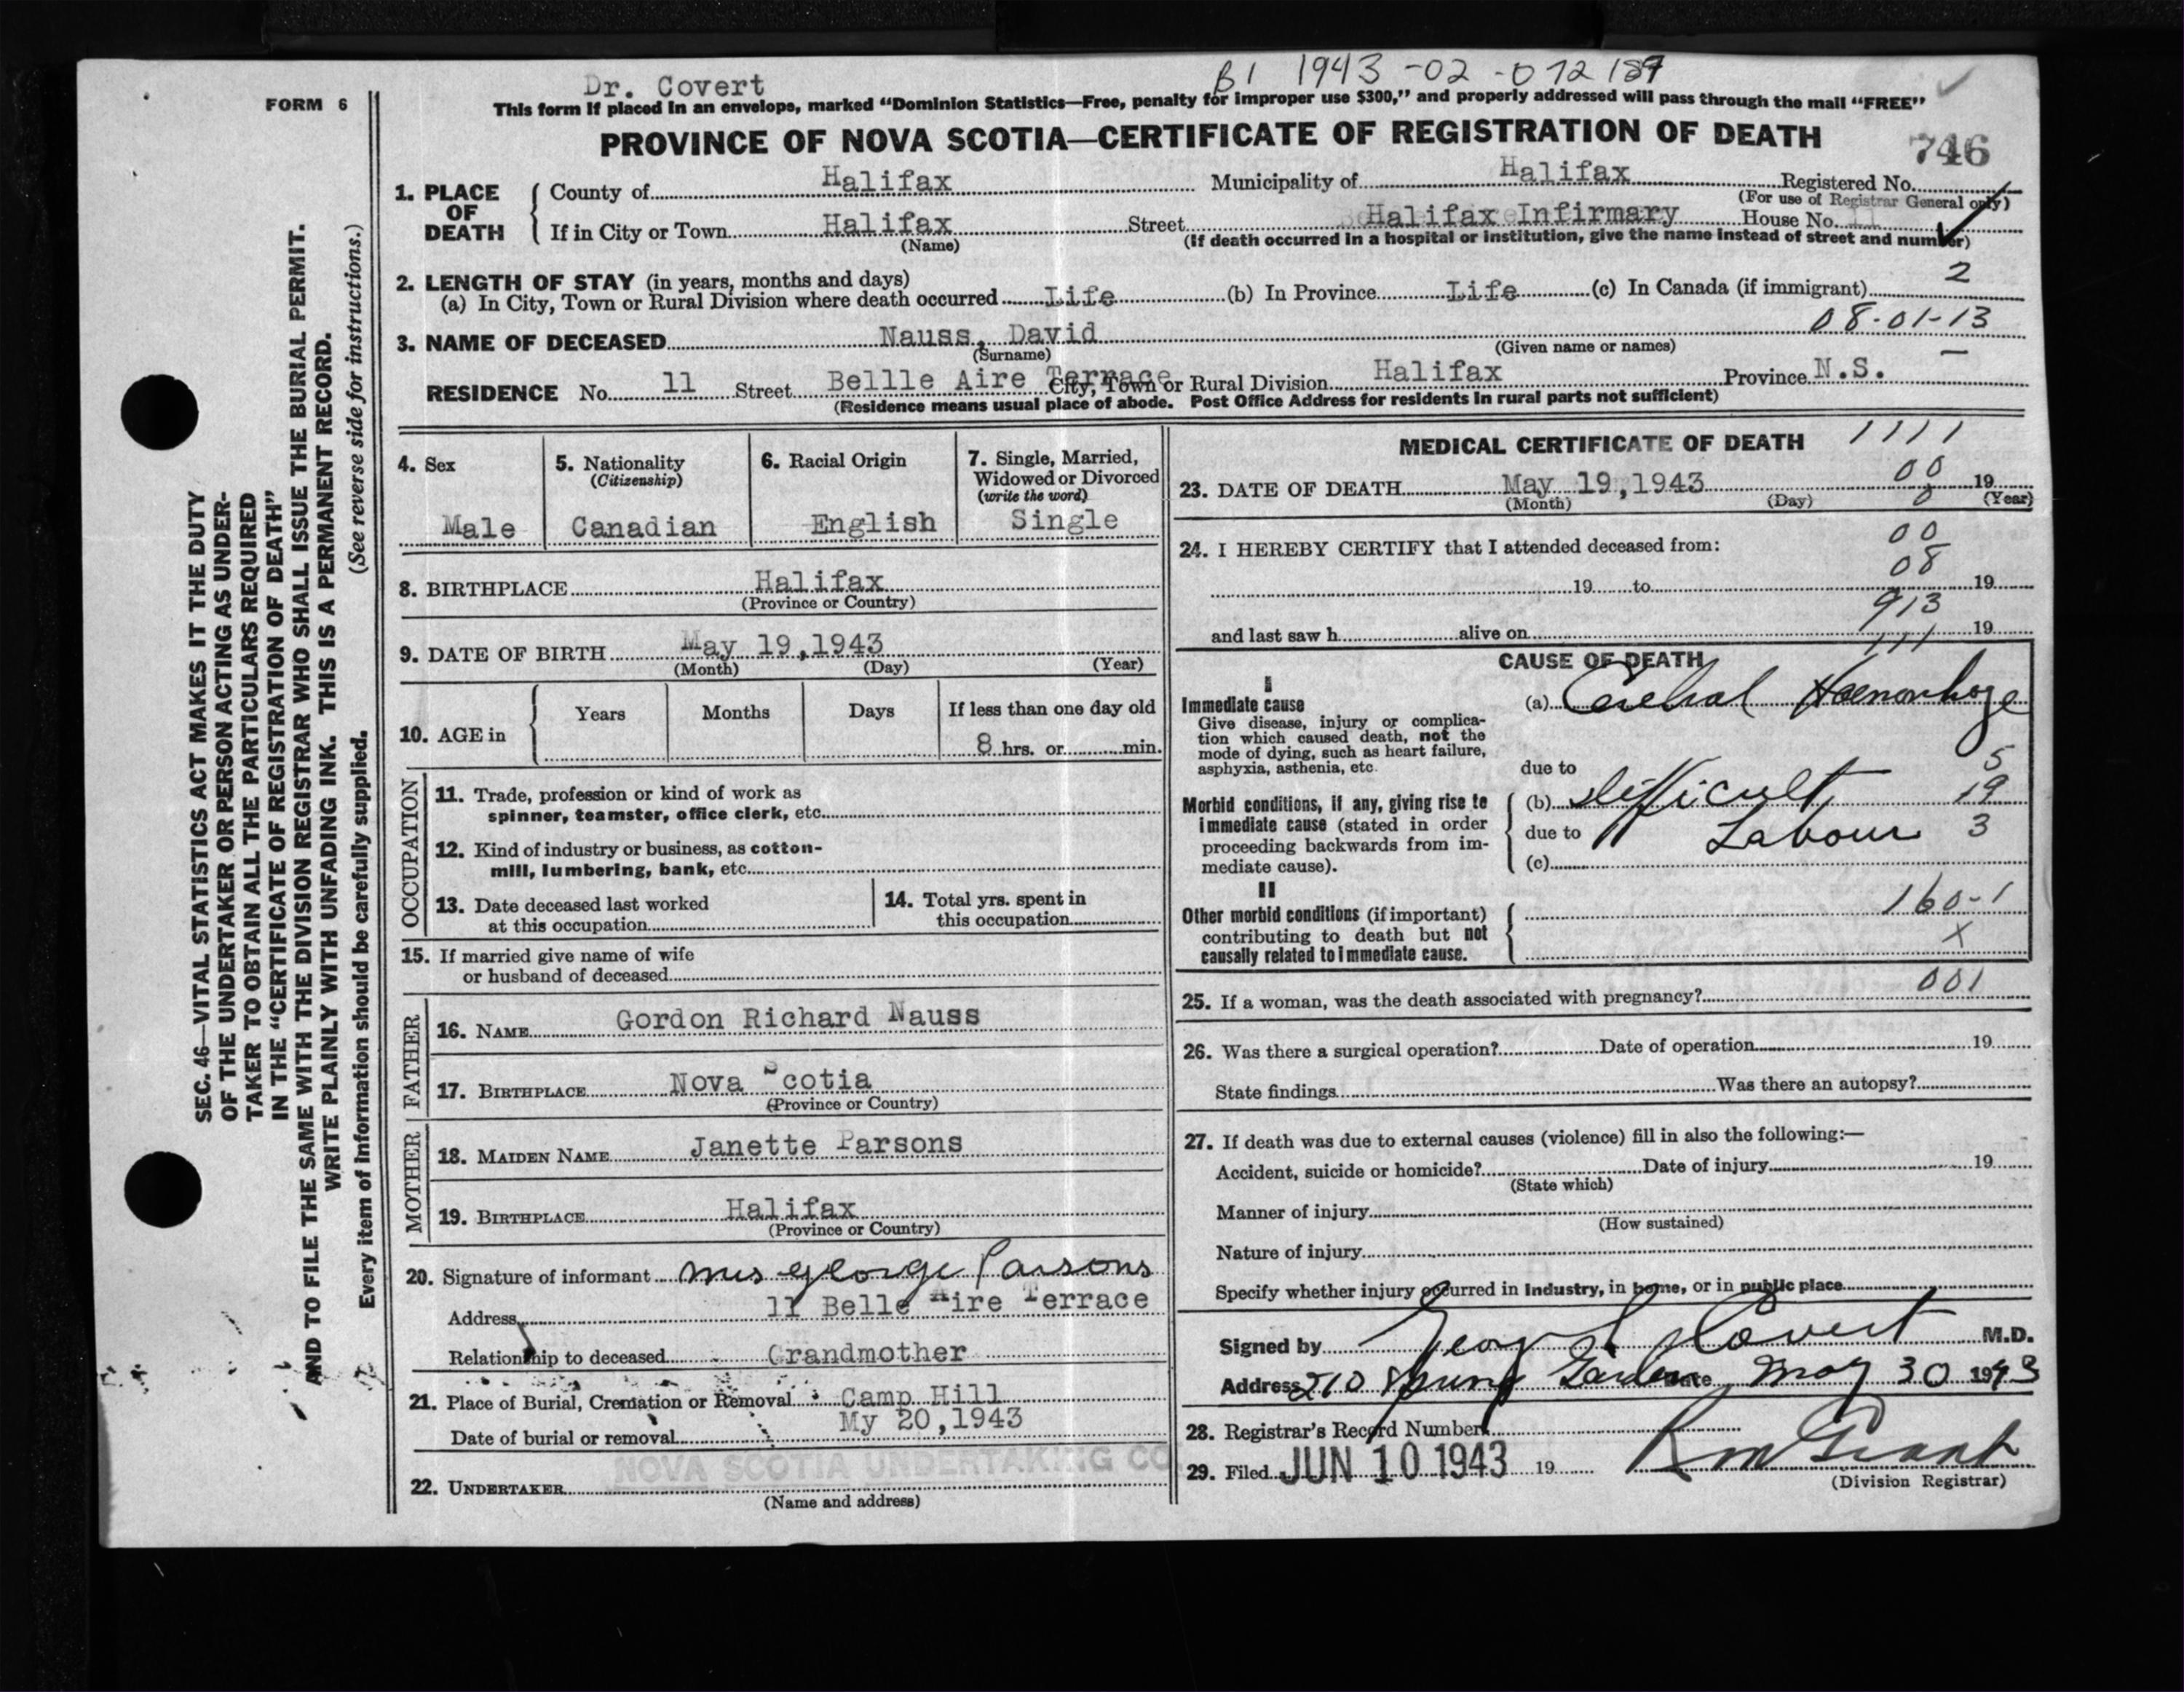 Dr. Covert
B1 1943-02-072189
FORM 6
This form if placed in an envelope, marked “Dominion Statistics—Free, penalty for improper use $300,” and properly addressed will pass through the mail “FREE”
PROVINCE OF NOVA SCOTIA—CERTIFICATE OF REGISTRATION OF DEATH
746
1. PLACE OF DEATH
County of Halifax Municipality of Halifax Registered No.
(For use of Registrar General only)
If in City or Town Halifax Street Halifax Infirmary House No. 11
(Name) (If death occurred in a hospital or institution, give the name instead of street and number)
2. LENGTH OF STAY (in years, months and days) 2
(a) In City, Town or Rural Division where death occurred Life (b) In Province Life (c) In Canada (if immigrant)
08-01-13
3. NAME OF DECEASED Nauss, David
(Surname) (Given name or names)
RESIDENCE No. 11 Street Bellle Aire Terrace City, Town or Rural Division Halifax Province N.S.
(Residence means usual place of abode. Post Office Address for residents in rural parts not sufficient)
4. Sex
Male
5. Nationality
(Citizenship)
Canadian
6. Racial Origin
English
7. Single, Married,
Widowed or Divorced
(write the word)
Single
8. BIRTHPLACE Halifax
(Province or Country)
9. DATE OF BIRTH May 19,1943
(Month) (Day) (Year)
10. AGE in
Years Months Days If less than one day old
8 hrs. or min.
OCCUPATION
11. Trade, profession or kind of work as
spinner, teamster, office clerk, etc.
12. Kind of industry or business, as cotton-
mill, lumbering, bank, etc.
13. Date deceased last worked
at this occupation
14. Total yrs. spent in
this occupation
15. If married give name of wife
or husband of deceased
FATHER
16. NAME Gordon Richard Nauss
17. BIRTHPLACE Nova Scotia
(Province or Country)
MOTHER
18. MAIDEN NAME Janette Parsons
19. BIRTHPLACE Halifax
(Province or Country)
20. Signature of informant Mrs George Parsons
Address 11 Belle Aire Terrace
Relationship to deceased Grandmother
21. Place of Burial, Cremation or Removal Camp Hill
Date of burial or removal My 20,1943
NOVA SCOTIA UNDERTAKING CO.
22. UNDERTAKER
(Name and address)
MEDICAL CERTIFICATE OF DEATH 1111
00
23. DATE OF DEATH May 19,1943 19
(Month) (Day) 0 (Year)
00
24. I HEREBY CERTIFY that I attended deceased from:
08
19 to 19
913
and last saw h alive on 19
111
CAUSE OF DEATH
I
Immediate cause
Give disease, injury or complica-
tion which caused death, not the
mode of dying, such as heart failure,
asphyxia, asthenia, etc.
(a) Cerebral Haemorhage
5
due to
Morbid conditions, if any, giving rise to
immediate cause (stated in order
proceeding backwards from im-
mediate cause).
(b) Difficult 19
due to Labour 3
(c)
II
Other morbid conditions (if important)
contributing to death but not
causally related to immediate cause.
160-1
X
001
25. If a woman, was the death associated with pregnancy?
26. Was there a surgical operation? Date of operation 19
State findings Was there an autopsy?
27. If death was due to external causes (violence) fill in also the following:—
Accident, suicide or homicide? Date of injury 19
(State which)
Manner of injury
(How sustained)
Nature of injury
Specify whether injury occurred in industry, in home, or in public place
Signed by Covert M.D.
Address 210 Spring Garden Date May 30 1943
28. Registrar's Record Number
29. Filed JUN 10 1943 19 Grant
(Division Registrar)
SEC. 46—VITAL STATISTICS ACT MAKES IT THE DUTY
OF THE UNDERTAKER OR PERSON ACTING AS UNDER-
TAKER TO OBTAIN ALL THE PARTICULARS REQUIRED
IN THE “CERTIFICATE OF REGISTRATION OF DEATH”
AND TO FILE THE SAME WITH THE DIVISION REGISTRAR WHO SHALL ISSUE THE BURIAL PERMIT.
WRITE PLAINLY WITH UNFADING INK. THIS IS A PERMANENT RECORD.
Every item of information should be carefully supplied. (See reverse side for instructions.)